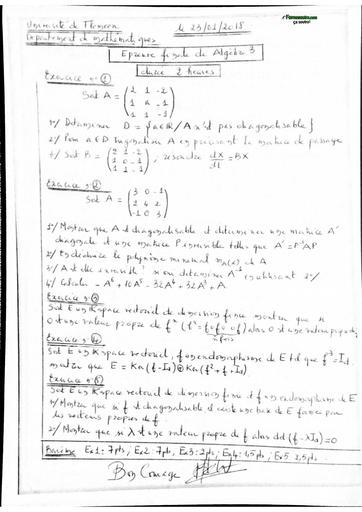 Université de Tlemcen le 23/01/2018
Département de mathématiques
Epreuve finale de Algèbre 3
durée 2 heures
Exercice n° 1
Soit A = ( 2 1 -2
1 a -1
1 1 -1 )
1°/ Déterminer D = { a∈R / A n'est pas diagonalisable }
2°/ Pour a∈D trigonaliser A en précisant la matrice de passage
Soit B = ( 2 1 -2
1 0 -1
1 1 -1 ), résoudre dX/dt = BX
Exercice n° 2
Soit A = ( 3 0 -1
2 4 2
-1 0 3 )
1°/ Montrer que A est diagonalisable et déterminer une matrice A'
diagonale et une matrice P inversible telle que A' = P⁻¹AP
2°/ En déduire le polynôme minimal mA(x) de A
3°/ A est elle inversible? si oui déterminer A⁻¹ en utilisant 2°/
4°/ Calculer -A⁶ + 10A⁵ - 32A⁴ + 32A³ + A
Exercice n° 3
Soit E un espace vectoriel de dimension finie montrer que si
0 est une valeur propre de fⁿ (fⁿ = f∘f∘ ∘f) alors 0 est une valeur propre de f
n fois
Exercice n° 4
Soit E un K espace vectoriel, f un endomorphisme de E tel que f³ = Id
montrer que E = Ker(f-Id) ⊕ Ker(f² + f + Id)
Exercice n° 5
Soit E un K espace vectoriel de dimension finie et f un endomorphisme de E
1°/ Montrer que si f est diagonalisable il existe une base de E formée par
les vecteurs propres de f
2°/ Montrer que si λ est une valeur propre de f alors det(f-λId) = 0
Barème Ex1: 7pts, Ex2: 7pts, Ex3: 2pts, Ex4: 1,5pts, Ex5 2,5pts
Bon Courage